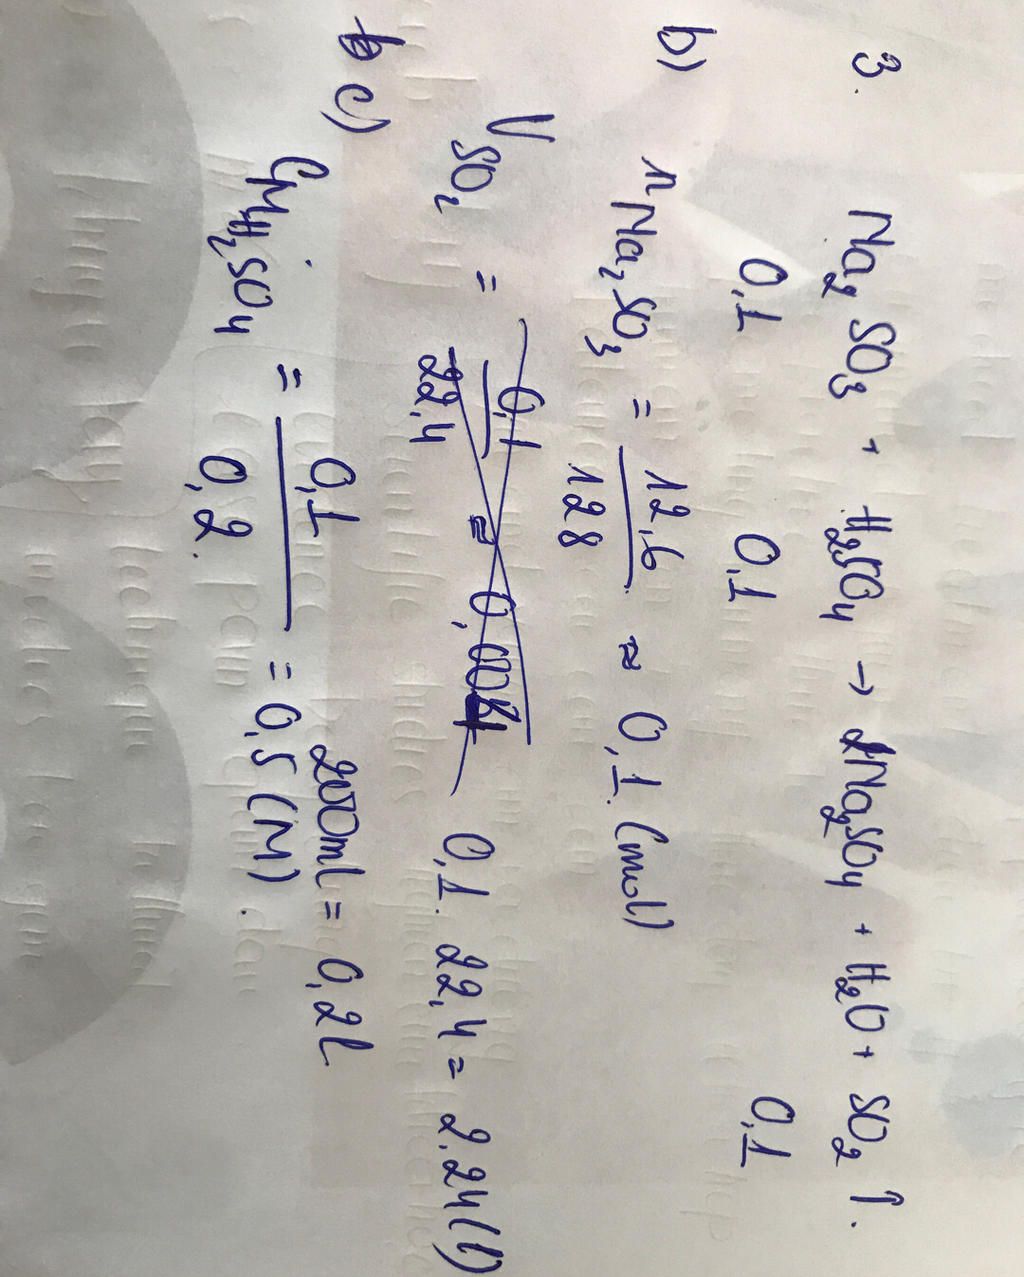 3. Na2SO3 + H2SO4 → Na2SO4 + H2O + SO2 ↑.
0,1 0,1 0,1
b) nNa2SO3 = 12,6 / 128 ≈ 0,1 (mol)
VSO2 = 0,1 / 22,4 ≈ 0,004 0,1. 22,4 = 2,24 (l)
c) 200ml = 0,2l
CMH2SO4 = 0,1 / 0,2 = 0,5 (M).